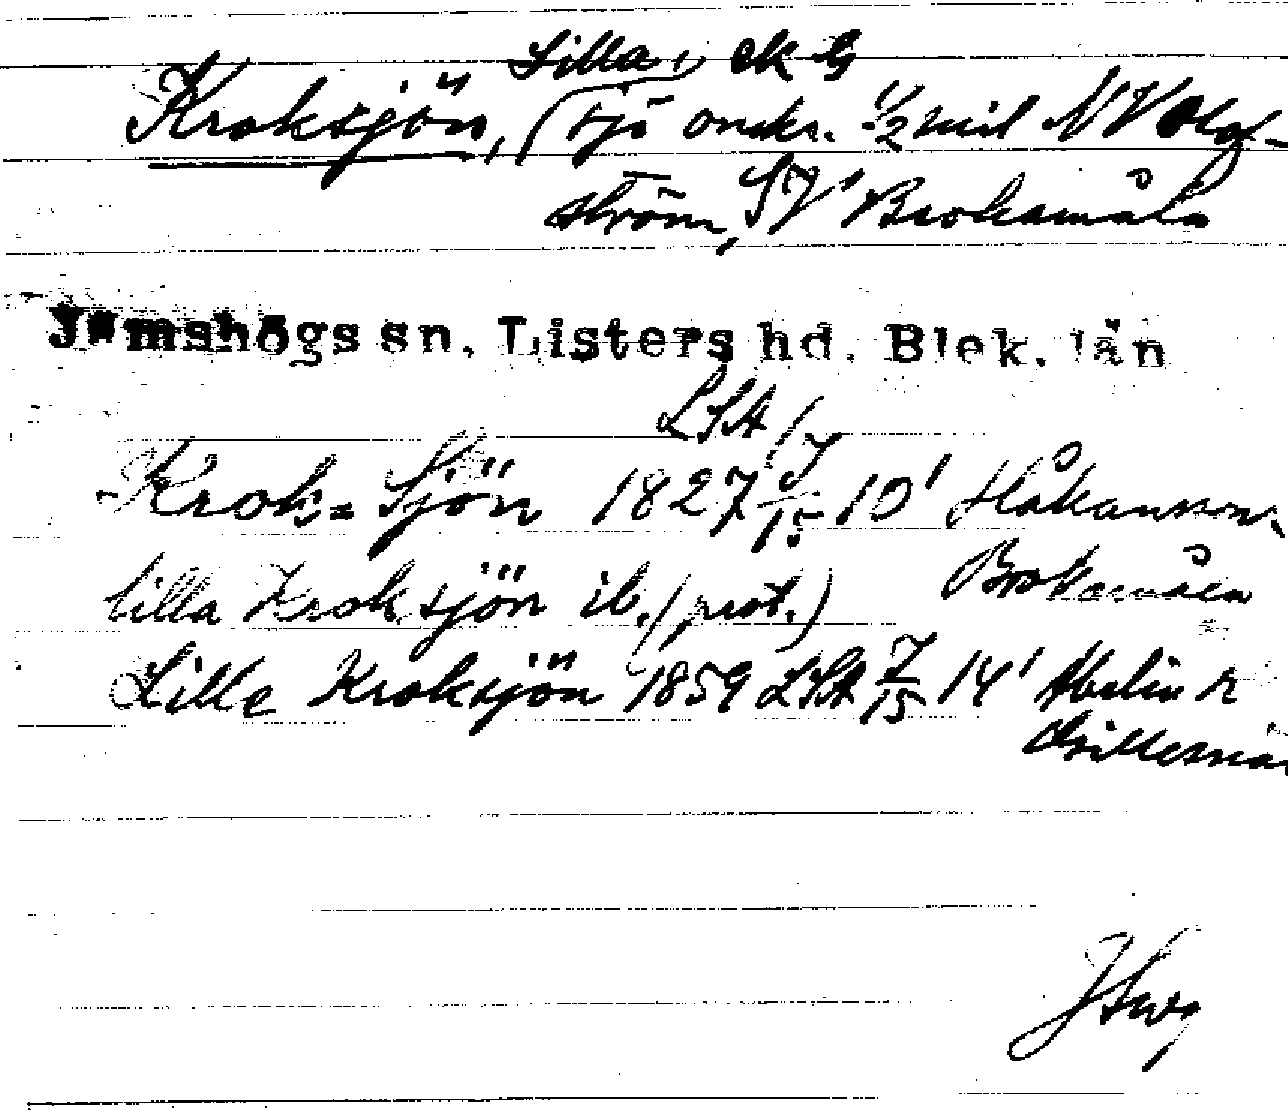 Lilla, ek G
Kroksjön, sjö omkr. 1/2 mil NV Olof-
ström, SV Brokamåla
Jämshögs sn. Listers hd. Blek. län
LSA
Krok-Sjön 1827 J/15 10' Håkansson,
lilla Kroksjön ib. (prot.) Brokamåla
Lille Kroksjön 1859 LSA J/15 14'